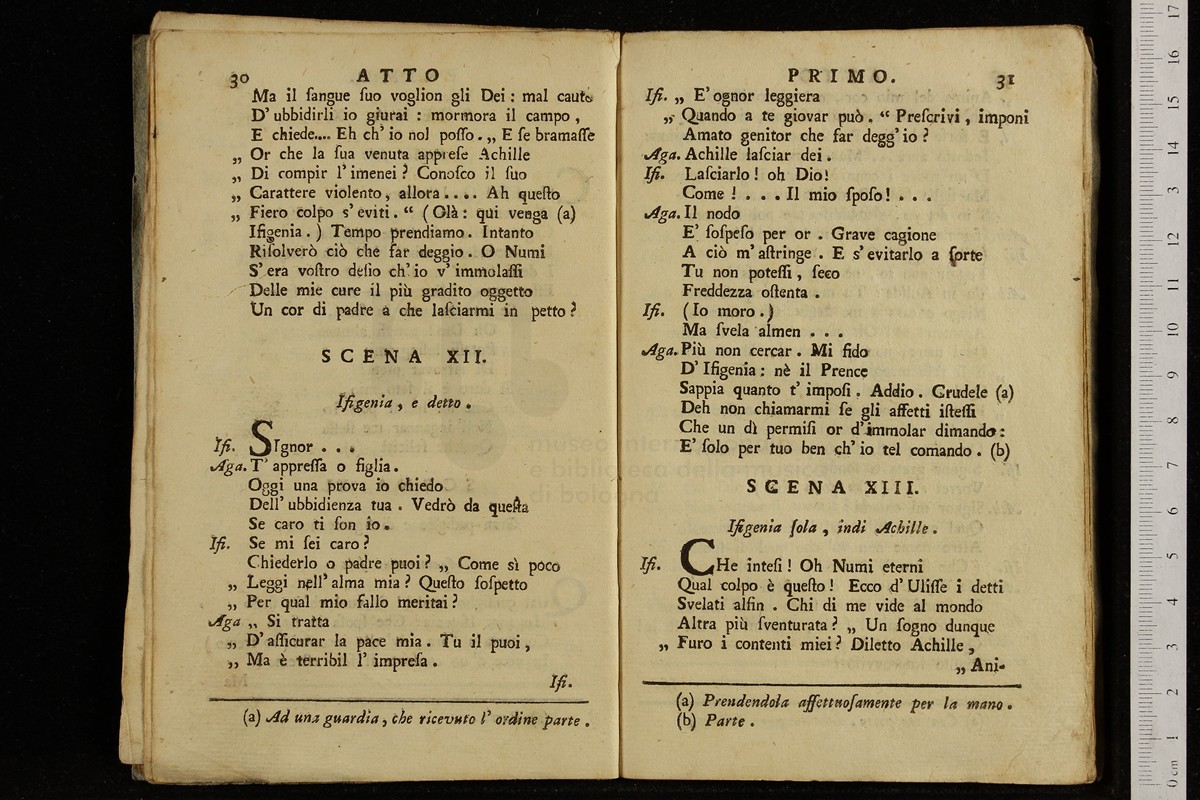 30 ATTO
Ma il ſangue ſuo voglion gli Dei : mal caute
D' ubbidirli io giurai : mormora il campo ,
E chiede.... Eh ch' io nol poſſo . „ E ſe bramaſſe
„ Or che la ſua venuta appreſe Achille
„ Di compir l' imenei ? Conoſco il ſuo
„ Carattere violento , allora . . . . Ah queſto
„ Fiero colpo s' eviti . “ ( Olà : qui venga (a)
Ifigenia . ) Tempo prendiamo . Intanto
Riſolverò ciò che far deggio . O Numi
S' era voſtro deſio ch' io v' immolaſſi
Delle mie cure il più gradito oggetto
Un cor di padre a che laſciarmi in petto ?
SCENA XII.
Ifigenia , e detto .
Ifi. SIgnor . . .
Aga. T' appreſſa o figlia .
Oggi una prova io chiedo
Dell' ubbidienza tua . Vedrò da queſta
Se caro ti ſon io .
Ifi. Se mi ſei caro ?
Chiederlo o padre puoi ? „ Come sì poco
„ Leggi nell' alma mia ? Queſto ſoſpetto
„ Per qual mio fallo meritai ?
Aga „ Si tratta
„ D' aſſicurar la pace mia . Tu il puoi ,
„ Ma è terribil l' impreſa .
Ifi.
(a) Ad una guardia , che ricevuto l' ordine parte .
PRIMO. 31
Ifi. „ E' ognor leggiera
„ Quando a te giovar può . “ Preſcrivi , imponi
Amato genitor che far degg' io ?
Aga. Achille laſciar dei .
Ifi. Laſciarlo ! oh Dio !
Come ! . . . Il mio ſpoſo ! . . .
Aga. Il nodo
E' ſoſpeſo per or . Grave cagione
A ciò m' aſtringe . E s' evitarlo a ſorte
Tu non poteſſi , ſeco
Freddezza oſtenta .
Ifi. (Io moro .)
Ma ſvela almen . . .
Aga. Più non cercar . Mi fido
D' Ifigenia : nè il Prence
Sappia quanto t' impoſi . Addio . Crudele (a)
Deh non chiamarmi ſe gli affetti iſteſſi
Che un dì permiſi or d' immolar dimando :
E' ſolo per tuo ben ch' io tel comando . (b)
SCENA XIII.
Ifigenia ſola , indi Achille .
Ifi. CHe inteſi ! Oh Numi eterni
Qual colpo è queſto ! Ecco d' Uliſſe i detti
Svelati alfin . Chi di me vide al mondo
Altra più ſventurata ? „ Un ſogno dunque
„ Furo i contenti miei ? Diletto Achille ,
„ Ani-
(a) Prendendola affettuoſamente per la mano .
(b) Parte .
museo internazionale
e biblioteca della musica
di bologna
0 cm 1 2 3 4 5 6 7 8 9 10 11 12 13 14 15 16 17